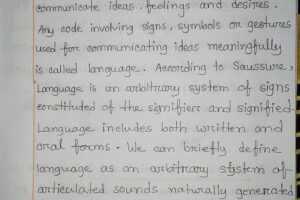 communicate ideas, feelings and desires.
Any code involving signs, symbols or gestures
used for communicating ideas meaningfully
is called language. According to Saussure,
Language is an arbitrary system of signs
constituted of the signifier and signified.
Language includes both written and
oral forms. We can briefly define
language as an arbitrary system of
articulated sounds naturally generated